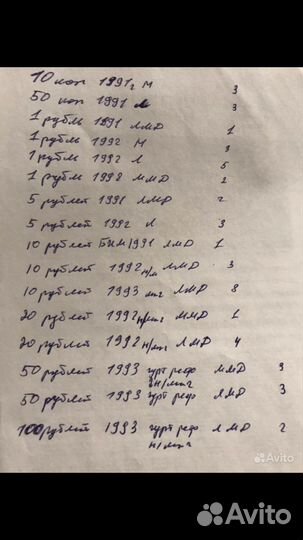 10 коп 1991г М 3
50 коп 1991 Л 3
1 рубль 1991 ЛМД 1
1 рубль 1992 М 3
1 рубль 1992 Л 5
1 рубль 1998 ММД 2
5 рублей 1991 ЛМД 2
5 рублей 1992 Л 3
10 рублей БИМ 1991 ЛМД 1
10 рублей 1992 н/м ЛМД 3
10 рублей 1993 маг ЛМД 8
20 рублей 1992 н/маг ММД 1
20 рублей 1992 н/маг ЛМД 4
50 рублей 1993 гурт реф ММД 3
н/маг
50 рублей 1993 гурт реф ЛМД 3
100 рублей 1993 гурт реф ЛМД 2
н/маг
Avito
Avito